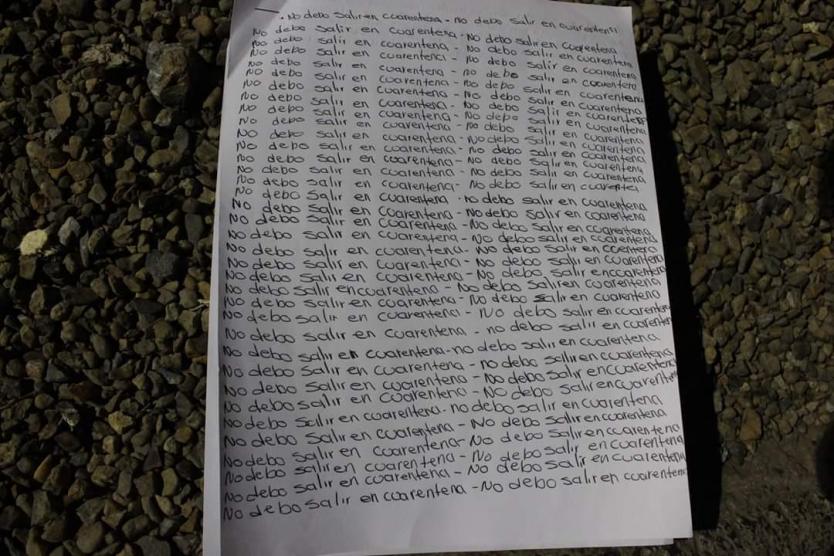 . No debo Salir en cuarentena - no debo salir en cuarentena
No debo salir en cuarentena - No debo salir en cuarentena
No debo salir en cuarentena - No debo salir en cuarentena
No debo salir en cuarentena - No debo salir en cuarentena
No debo salir en cuarentena - no debo salir en cuarentena
No debo salir en cuarentena - no debo salir en cuarentena
No debo salir en cuarentena - No debo salir en cuarentena
No debo salir en cuarentena - No debo salir en cuarentena
No debo salir en cuarentena - No debo salir en cuarentena
No debo salir en cuarentena - No debo salir en cuarentena
No debo salir en cuarentena - No debo salir en cuarentena
No debo salir en cuarentena - No debo salir en cuarentena
No debo salir en cuarentena - No debo salir en cuarentena
No debo salir en cuarentena - No debo salir en
No debo salir en cuarentena - no debo salir en cuarentena
No debo salir en cuarentena - No debo salir en cuarentena
No debo salir en cuarentena - No debo salir en cuarentena
No debo salir en cuarentena - No debo salir en cuarentena
No debo salir en cuarentena - No debo salir en
No debo salir en cuarentena - No debo salir en cuarentena
No debo salir en cuarentena - No debo salir en cuarentena
No debo salir en cuarentena - No debo salir en cuarentena
No debo salir en cuarentena - No debo salir en cuarentena
No debo salir en cuarentena - No debo salir en cuarentena
No debo salir en cuarentena - no debo salir en cuarentena
No debo salir en cuarentena - no debo salir en cuarentena
No debo salir en cuarentena - no debo salir en cuarentena
No debo salir en cuarentena - No debo salir en cuarentena
No debo salir en cuarentena - No debo salir en cuarentena
No debo Salir en cuarentena - no debo salir en cuarentena
No debo salir en cuarentena - No debo salir en cuarentena
No debo salir en cuarentena - No debo salir en cuarentena
No debo salir en cuarentena - No debo salir en cuarentena
No debo salir en cuarentena - No debo salir en cuarentena
No debo salir en cuarentena - No debo salir en cuarentena